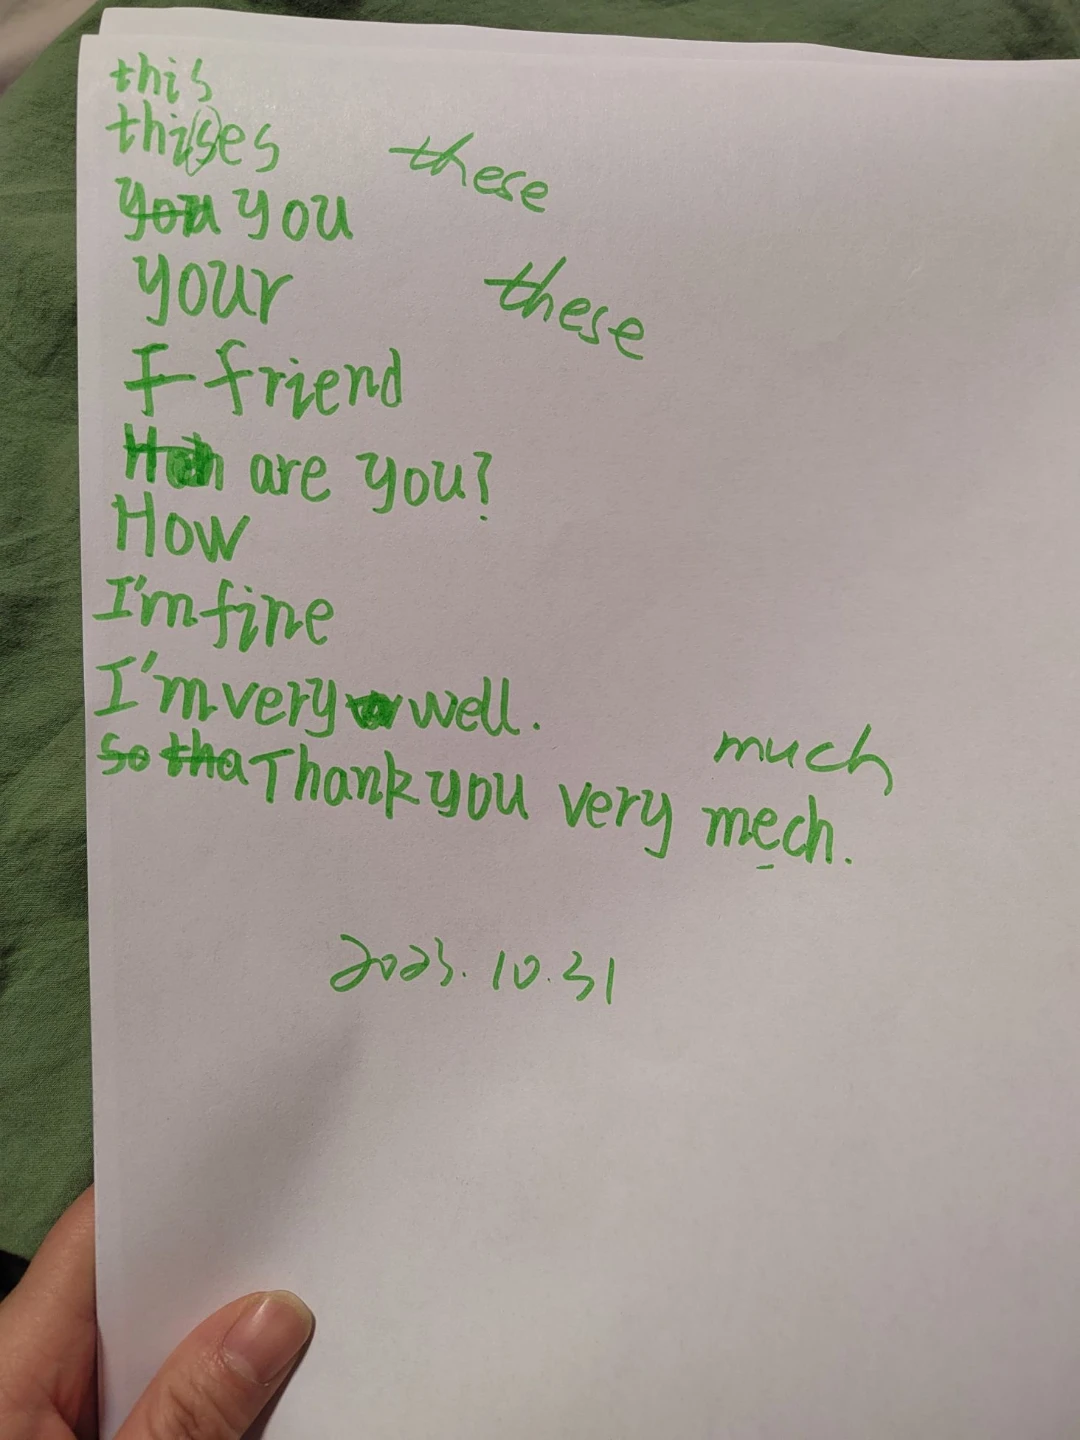 this
thises these
you you
your these
F friend
are you?
How
I'm fine
I'm very well.
much
so tha Thank you very mech.
2023.10.31